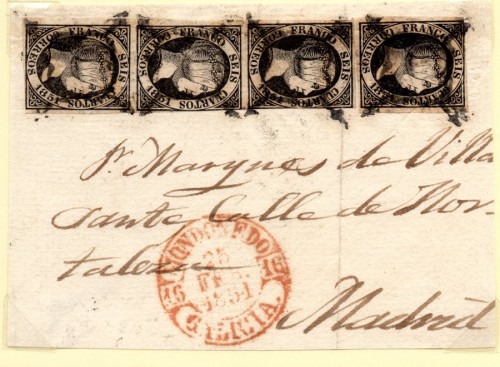 FRANCO SEIS CUARTOS 1851
FRANCO SEIS CUARTOS 1851
FRANCO SEIS CUARTOS 1851
FRANCO SEIS CUARTOS 1851
Sr. Marques de Villa
sante Calle de Hor-
taleza
Madrid
MONDOÑEDO
16 16
25
FEB.
1851
GALICIA.